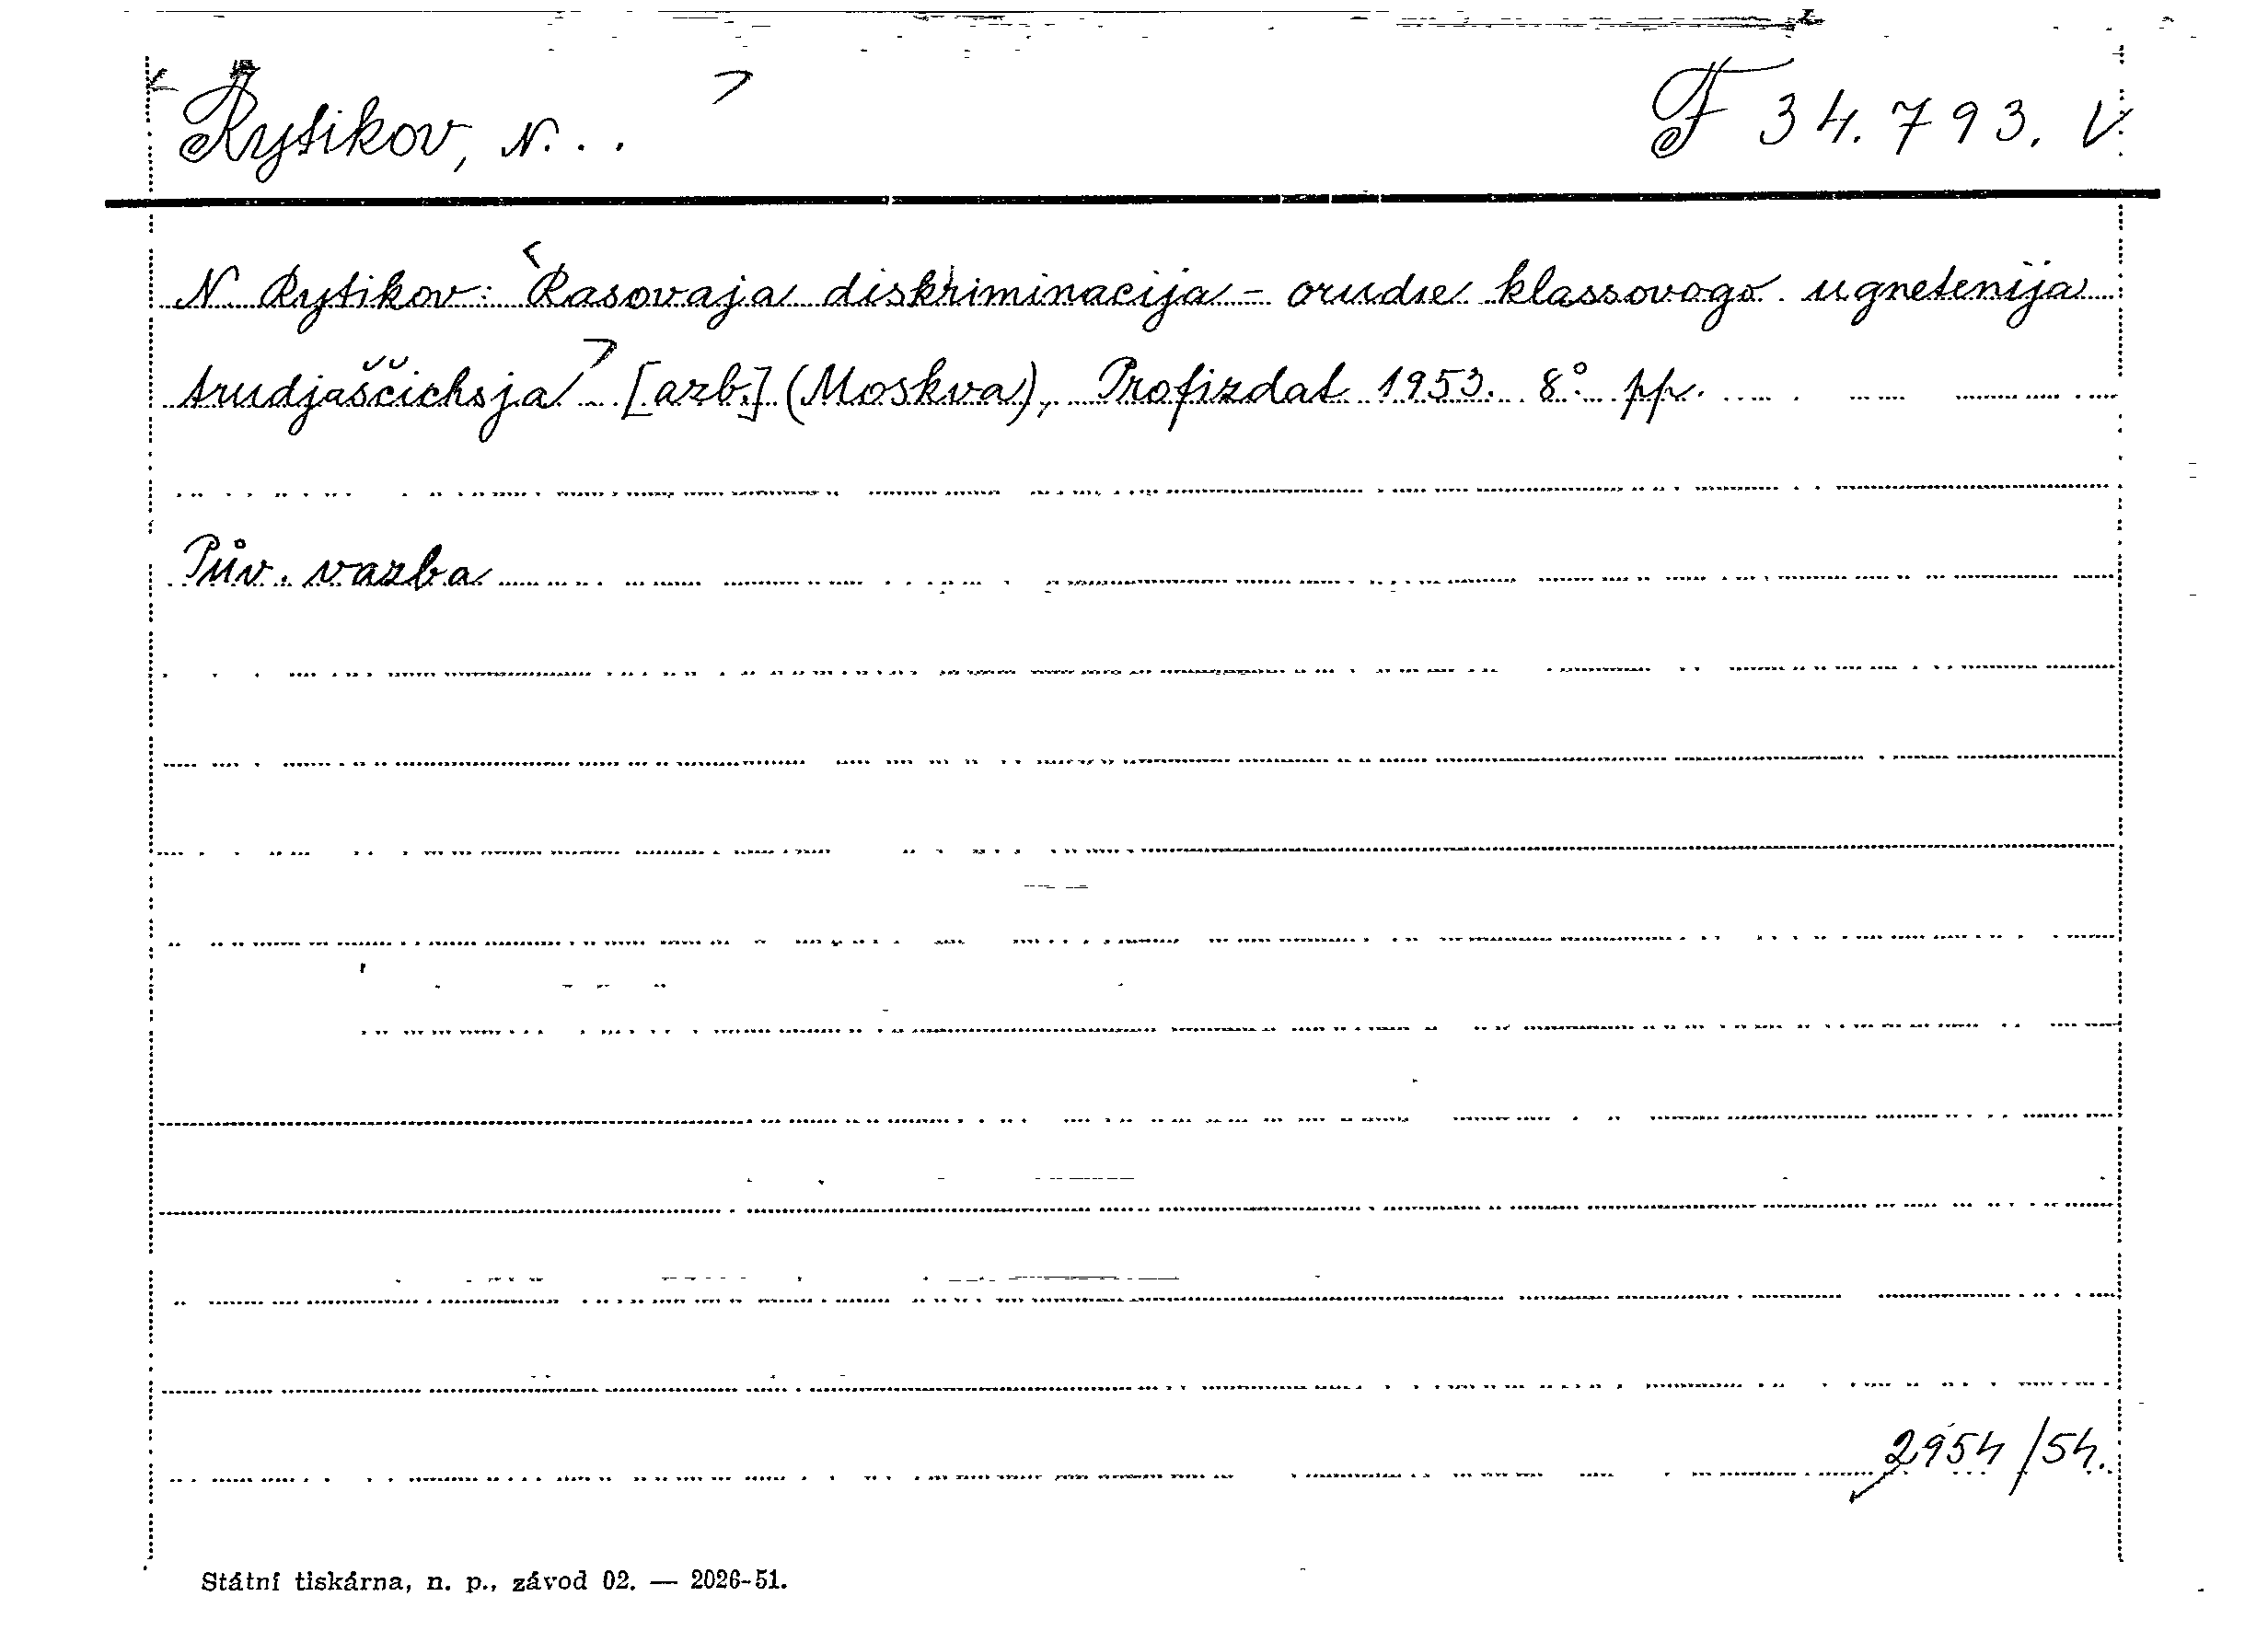 Rytikov, N. . .
F 34.793. V.
N. Rytikov: Rasovaja diskriminacija - orudie klassovogo ugnetenija
trudjaščichsja [azb.] (Moskva), Profizdat 1953. 8° pp.
Pův. vazba
2954/54.
Státní tiskárna, n. p., závod 02. — 2026-51.